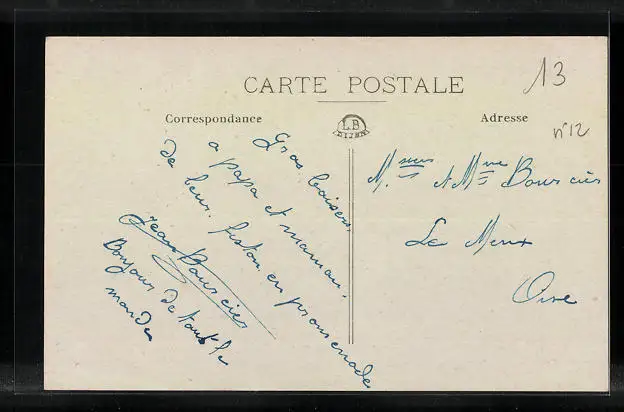 CARTE POSTALE
13
Correspondance
LB
DIJON
Adresse
n°12
Gros baisers
a papa et maman.
de leur fiston en promenade
Jean Bourcier
Bonjour de tout le
monde
M. et Mme Bourcier
Le Meux
Oise